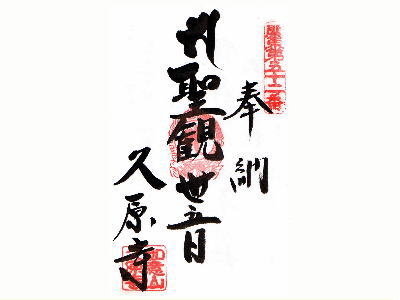 第五十二番
奉納
聖観世音
久原寺
如意山